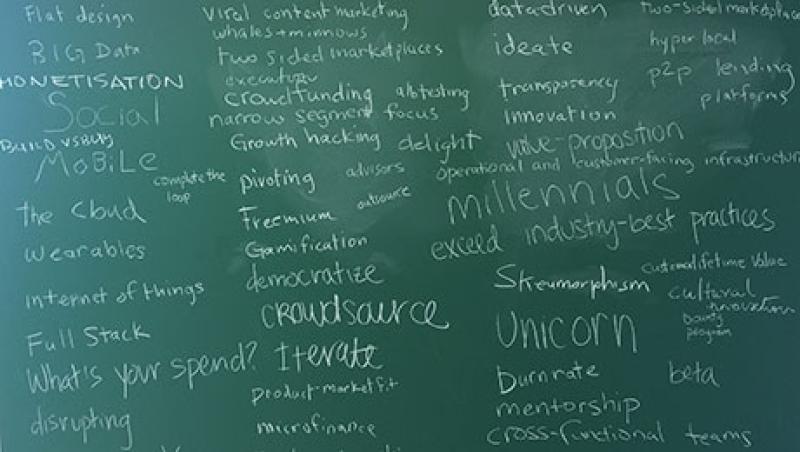 Flat design
BIG Data
MONETISATION
Social
BUILD VS BUY
MOBiLe
complete the
loop
the Cloud
wearables
internet of things
Full Stack
What's your spend?
disrupting
Viral content marketing
whales+minnows
two sided marketplaces
execution
crowdfunding
a/b testing
narrow segment focus
Growth hacking
delight
pivoting
advisors
Freemium
outsource
Gamification
democratize
crowdsource
Iterate
product-market fit
microfinance
data driven
two-sided marketplace
ideate
hyper local
transparency
p2p lending
platforms
Innovation
value-proposition
operational and customer-facing infrastructure
millennials
exceed industry-best practices
Skeumorphism
customer lifetime value
cultural
innovation
bounty
program
Unicorn
Burnrate
beta
mentorship
cross-functional teams